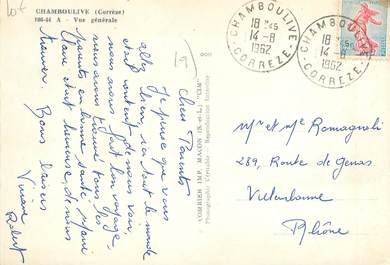 CHAMBOULIVE (Corrèze)
106-44 A - Vue générale
CHAMBOULIVE
18 H 45
14-8
1962
CORREZE
CHAMBOULIVE
18 H 45
14-8
1962
CORREZE
Chers Parents
J'espère que vous
allez bien, ici tout le monde
est content de nous voir
nous avons fait bon voyage,
nous avons trouvé tous les
parents en bonne santé. Mémé
Jeane était heureuse de nous
trouver. Bons baisers
Viviane
Robert
COMBIER IMP. MACON (S.-et-L.) "CIM"
Photographie Véritable - Reproduction Interdite
Mr et Me Romagnoli
289, Route de Genas
Villeurbanne
Rhône